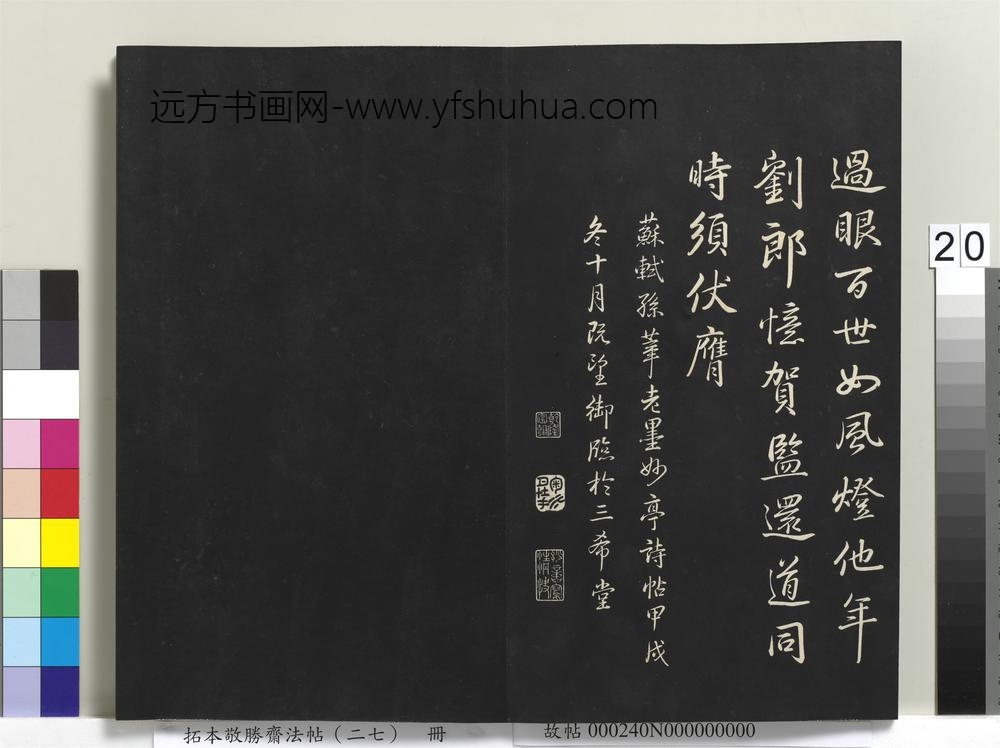 远方书画网-www.yfshuhua.com
過眼百世如風燈他年
劉郎憶賀監還道同
時須伏膺
蘇軾孫莘老墨妙亭詩帖甲戌
冬十月既望御臨於三希堂
20
拓本敬勝齋法帖（二七） 冊
故帖 000240N000000000